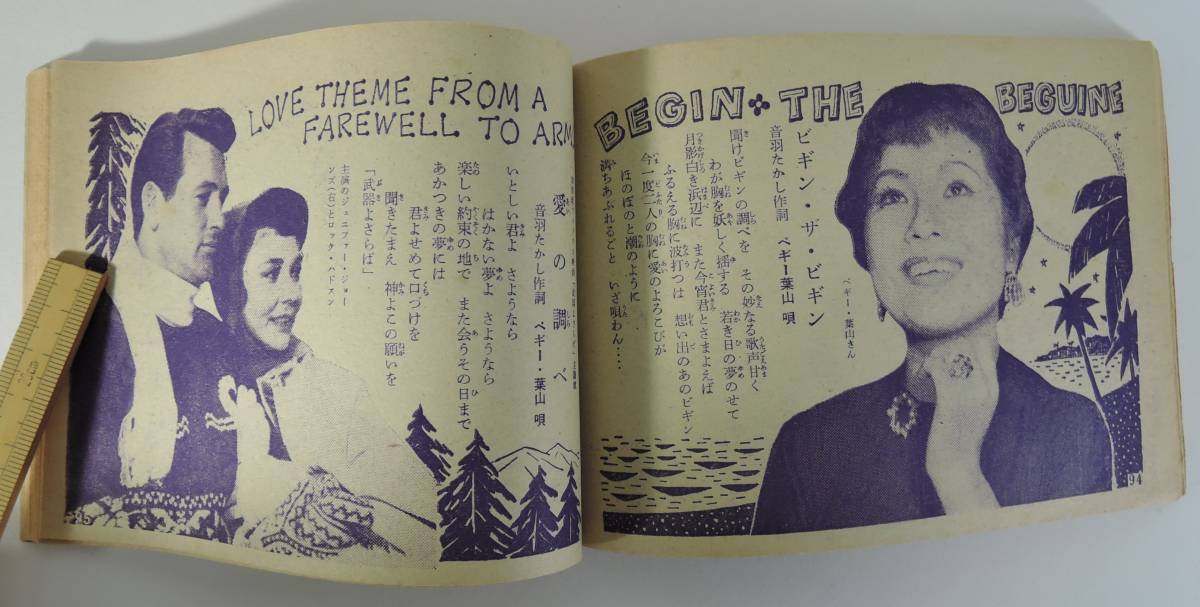 BEGIN THE BEGUINE
ビギン・ザ・ビギン
音羽たかし作詞 ペギー葉山 唄
聞けビギンの調べを その妙なる歌声甘く
わが胸を妖しく揺する 若き日の夢のせて
月影白き浜辺に また今宵君とさまよえば
ふるえる胸に波打つは 想い出のあのビギン
今一度二人の胸に愛のよろこびが
ほのぼのと潮のように
満ちあふれるごと いざ唄わん‥‥
ペギー・葉山さん
94
LOVE THEME FROM A
FAREWELL TO ARM
愛の調べ
音羽たかし作詞 ペギー・葉山 唄
いとしい君よ さようなら
はかない夢よ さようなら
楽しい約束の地で また会うその日まで
あかつきの夢には
君よせめて口づけを
聞きたまえ 神よこの願いを
「武器よさらば」
主演のジェニファー・ジョー
ンズ(右)とロック・ハドソン
95